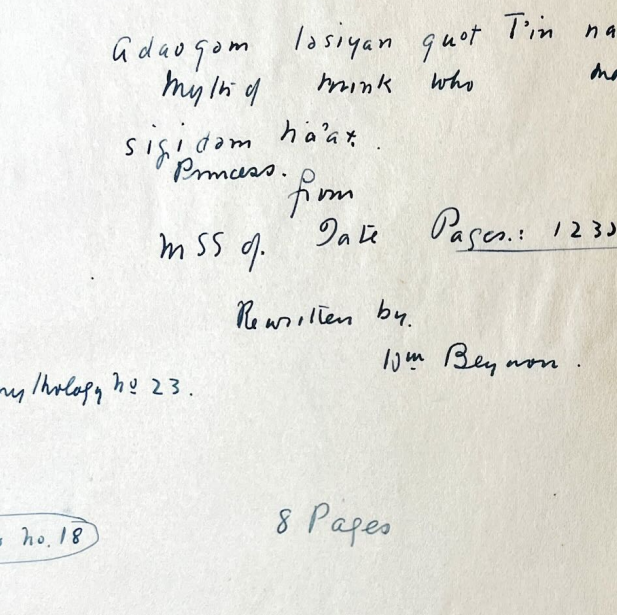 adaogam ləsiyan quot T'in na
Myth of mink who
sigidəm ha'at.
Princess.
from
MSS of Tate Pages.: 123
Rewritten by.
Wm Beynon.
mythology No 23.
no. 18
8 Pages